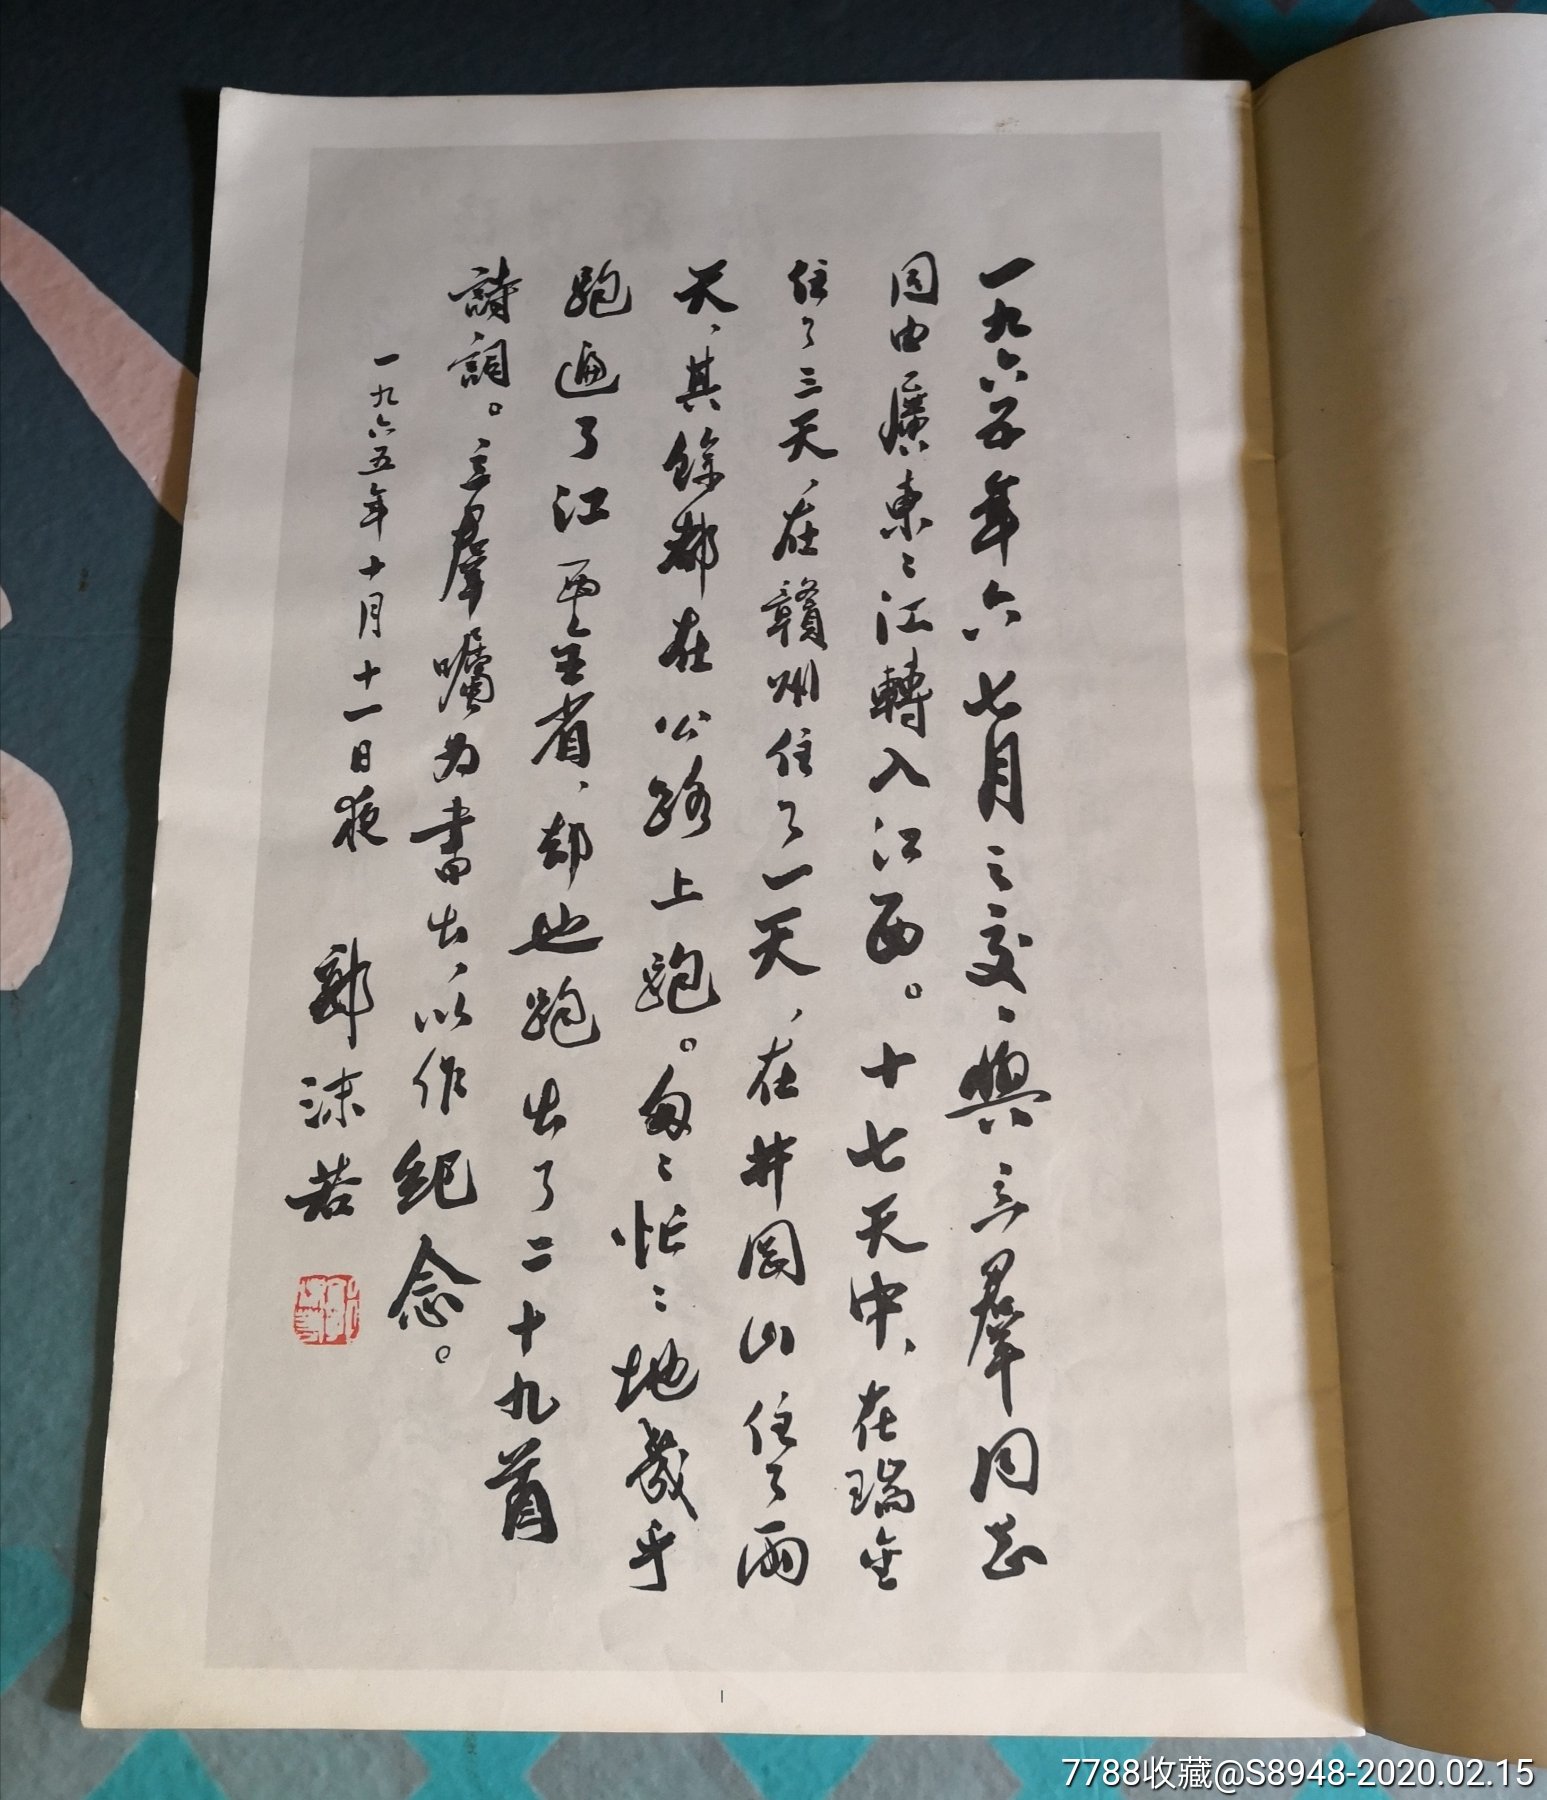 一九六五年六七月之交、與立群同志
同由廣東之江轉入江西。十七天中、在瑞金
住了三天、在贛州住了一天、在井岡山住了兩
天、其餘都在公路上跑。匆々忙々地幾乎
跑遍了江西全省、却也跑出了二十九首
詩詞。立羣囑為書出、以作紀念。
一九六五年十月十一日夜 郭沫若
1
7788收藏@S8948-2020.02.15